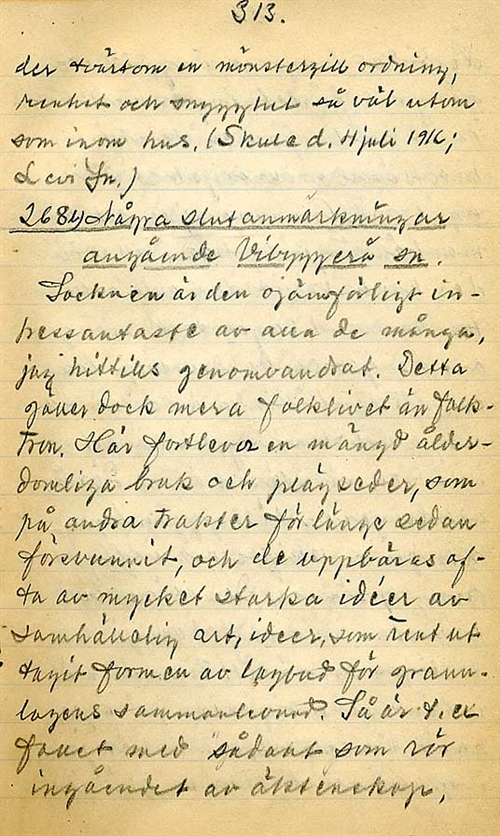 313.
der tvärtom en mönstergill ordning,
renhet och snygghet så väl utom
som inom hus. (Skule d. 4 juli 1916;
Levi Jn.)
2684) Några slutanmärkningar
angående Vibyggerå sn.
Socknen är den ojämförligt in-
tressantaste av alla de många,
jag hittills genomvandrat. Detta
gäller dock mera folklivet än folk-
tron. Här fortlever en mängd ålder-
domliga bruk och plägseder, som
på andra trakter för länge sedan
försvunnit, och de uppbäras of-
ta av mycket starka idéer av
samhällelig art, ideer, som rent ut
tagit formen av lagbud för grann-
lagens sammanlevnad. Så är t. ex
fallet med sådant som rör
ingåendet av äktenskap,